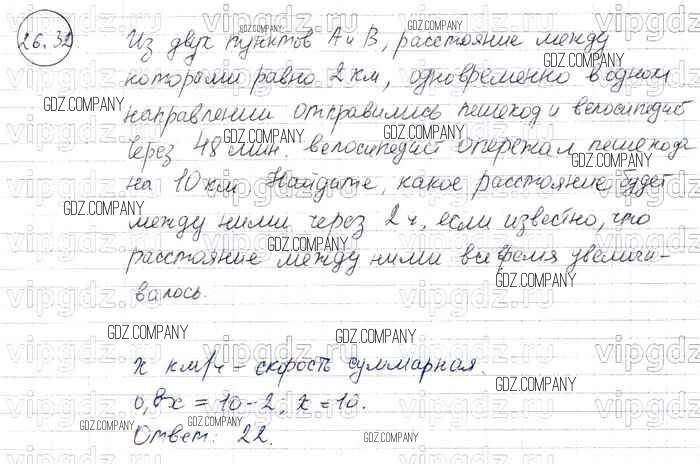 26.32
Из двух пунктов А и В, расстояние между
которыми равно 2 км, одновременно в одном
направлении отправились пешеход и велосипедист
Через 48 мин. велосипедист опережал пешехода
на 10 км. Найдите, какое расстояние будет
между ними через 2 ч, если известно, что
расстояние между ними все время увеличи-
валось.
x км/ч - скорость суммарная.
0,8x = 10-2; x = 10.
Ответ: 22.
vipgdz.ru
GDZ.COMPANY